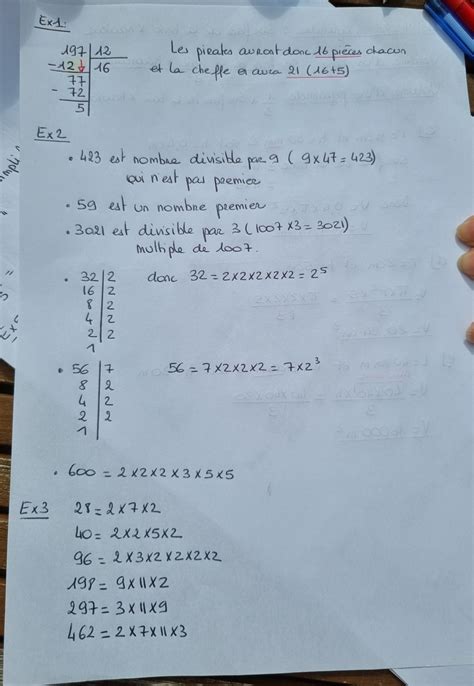 Ex1:
197 | 12
-12 | 16
77
- 72
5
Les pirates auront donc 16 pièces chacun
et la cheffe en aura 21 (16+5)
Ex2
• 423 est nombre divisible par 9 ( 9×47 = 423)
qui n'est pas premier
• 59 est un nombre premier
• 3021 est divisible par 3 (1007 ×3 = 3021)
multiple de 1007.
• 32 | 2 donc 32 = 2×2×2×2×2 = 2⁵
16 | 2
8 | 2
4 | 2
2 | 2
1
• 56 | 7 56 = 7×2×2×2 = 7×2³
8 | 2
4 | 2
2 | 2
1
• 600 = 2×2×2×3×5×5
Ex3 28 = 2×7×2
40 = 2×2×5×2
96 = 2×3×2×2×2×2
198 = 9×11×2
297 = 3×11×9
462 = 2×7×11×3